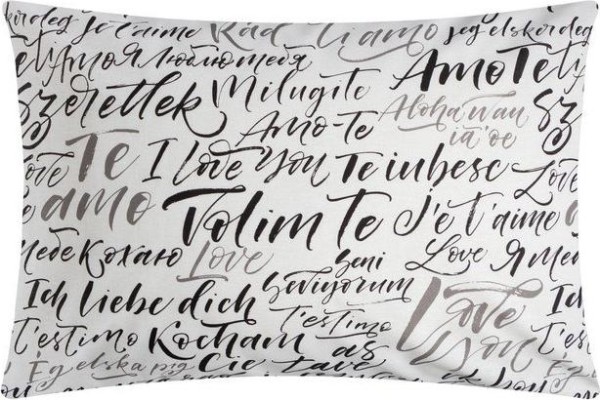 jeg elsker deg je t'aime Rád Ti amo jeg elsker deg
Te amo Я люблю тебя Amo Te
Szeretlek Milujite
Amo-te Aloha wau
ia 'oe
Te I Love You Te iubesc Love
amo Volim Te Je t'aime
тебе Кохаю Love Seni Love Я
Ich liebe dich Seviyorum Love
t'estimo Kocham t'estimo You
Ég elska þig Cię as